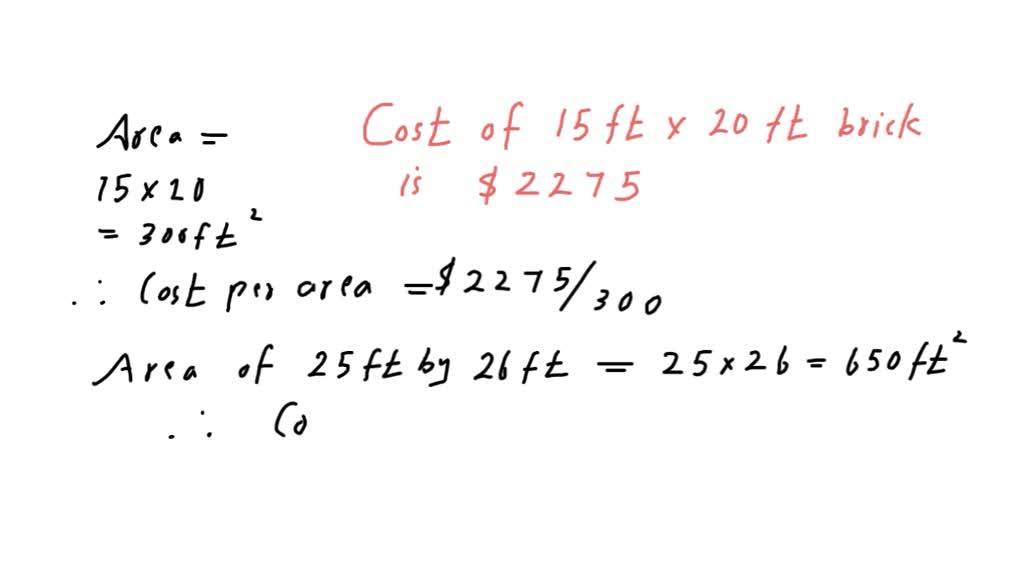 Area =
15 x 20
= 300ft²
Cost of 15ft x 20ft brick
is $2275
∴ Cost per area = $2275/300
Area of 25ft by 26ft = 25 x 26 = 650ft²
∴ Co